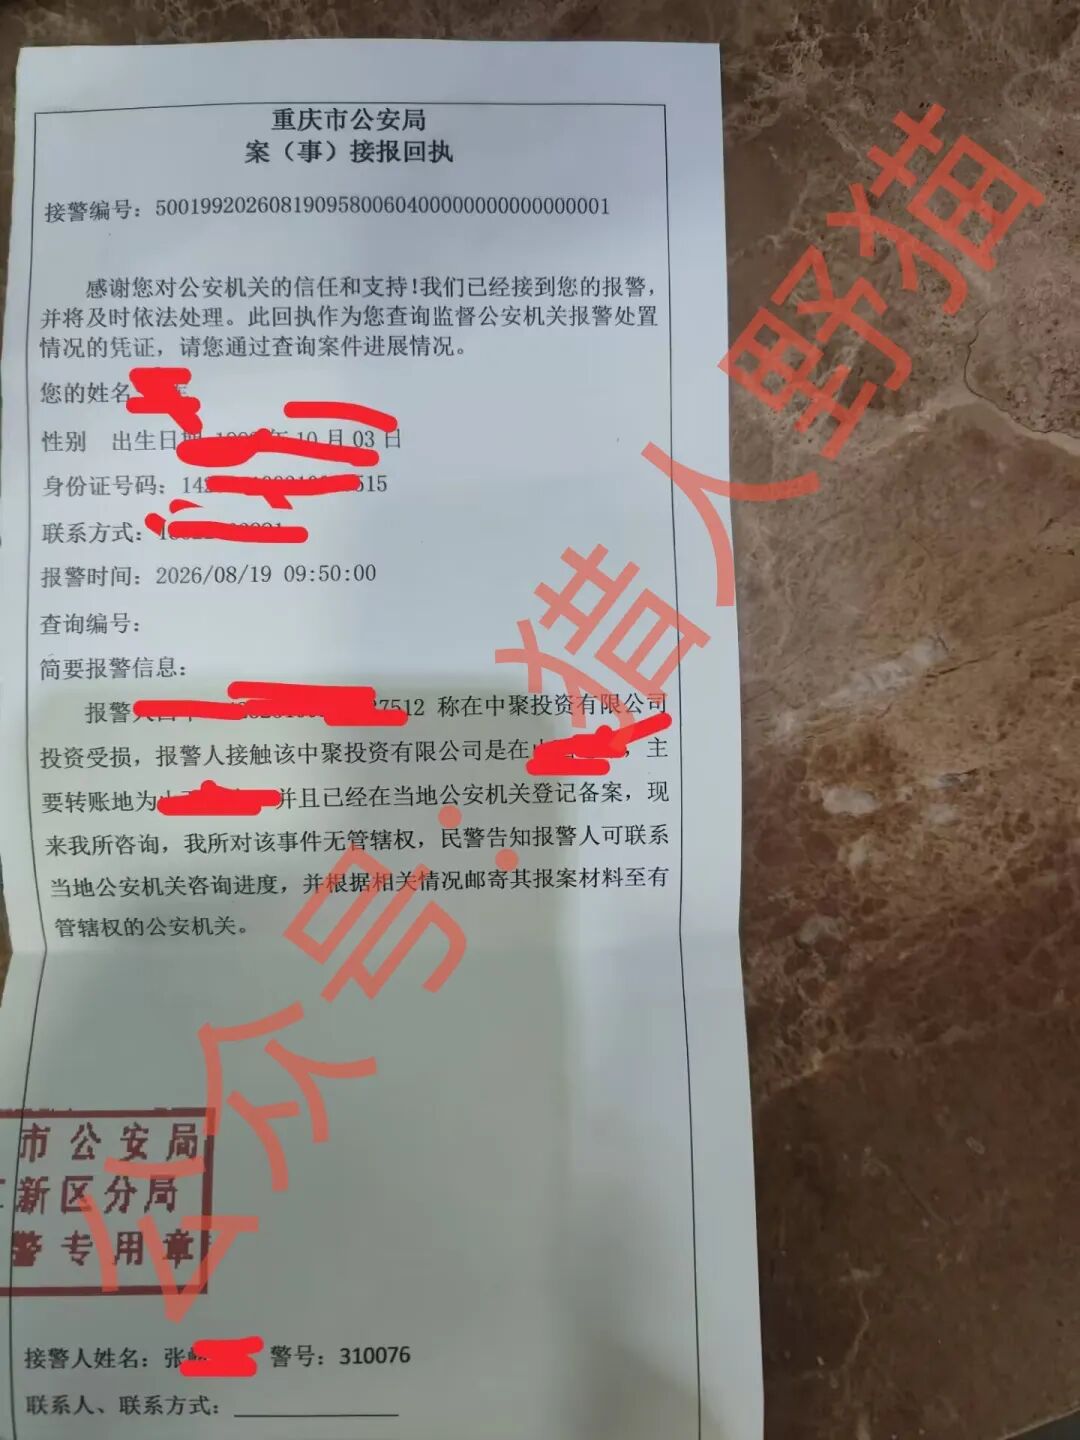 重庆市公安局
案（事）接报回执
接警编号：50019920260819095800604000000000000000001
感谢您对公安机关的信任和支持！我们已经接到您的报警，
并将及时依法处理。此回执作为您查询监督公安机关报警处置
情况的凭证，请您通过查询案件进展情况。
您的姓名
性别 出生日期 年 10 月 03 日
身份证号码：14 515
联系方式：
报警时间：2026/08/19 09:50:00
查询编号：
简要报警信息：
报警人 7512 称在中聚投资有限公司
投资受损，报警人接触该中聚投资有限公司是在 ，主
要转账地为 并且已经在当地公安机关登记备案，现
来我所咨询，我所对该事件无管辖权，民警告知报警人可联系
当地公安机关咨询进度，并根据相关情况邮寄其报案材料至有
管辖权的公安机关。
市公安局
新区分局
专用章
接警人姓名：张 警号：310076
联系人、联系方式：
公众号：猎人野猫